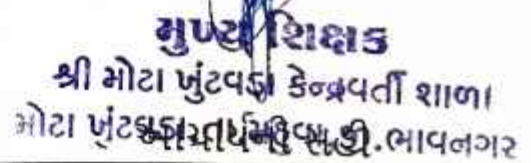 મુખ્ય શિક્ષક
શ્રી મોટા ખુંટવડા કેન્દ્રવર્તી શાળા
મોટા ખુંટવડા તા. મહુવા જી.ભાવનગર